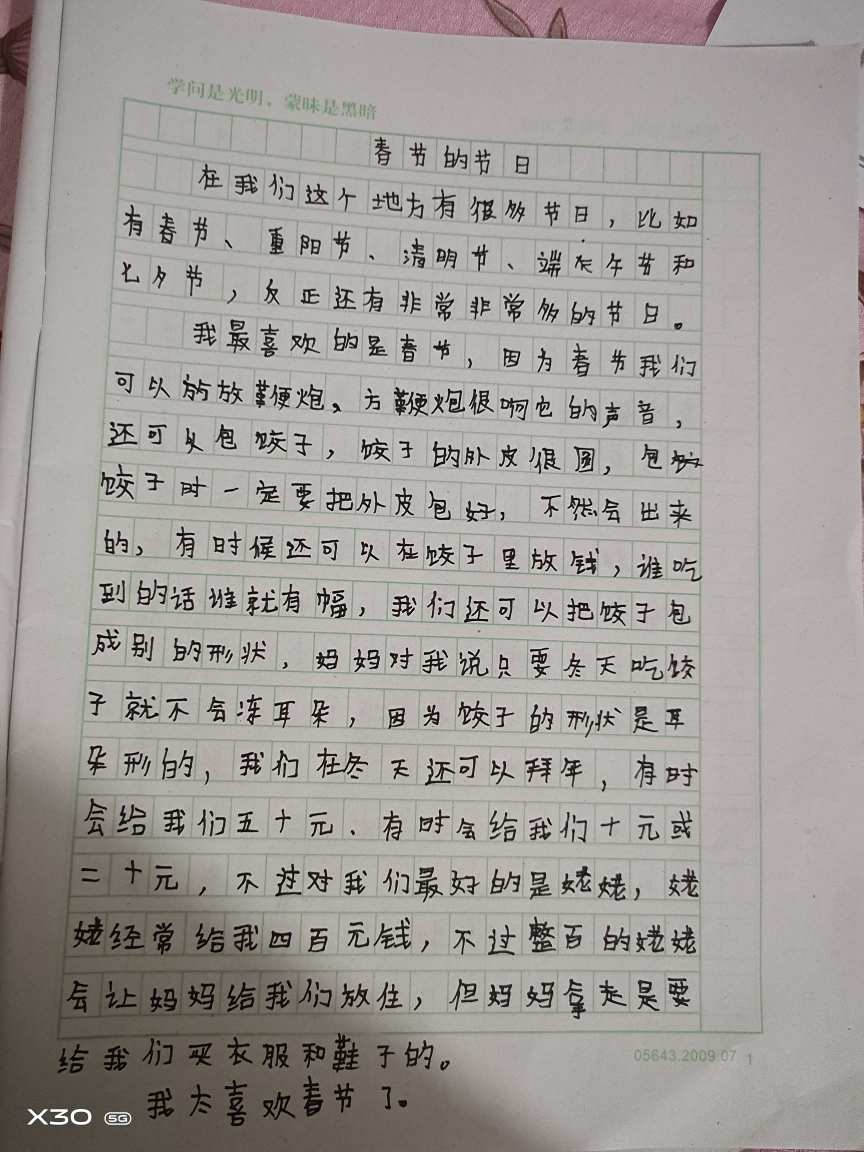 学问是光明，蒙昧是黑暗
春节的节日
在我们这个地方有很多节日，比如
有春节、重阳节、清明节、端午节和
七夕节，反正还有非常非常多的节日。
我最喜欢的是春节，因为春节我们
可以放放鞭炮、方鞭炮很啊它的声音，
还可以包饺子，饺子的外皮很圆，包
饺子时一定要把外皮包好，不然会出来
的，有时候还可以在饺子里放钱，谁吃
到的话谁就有幅，我们还可以把饺子包
成别的形状，妈妈对我说只要冬天吃饺
子就不会冻耳朵，因为饺子的形状是耳
朵形的，我们在冬天还可以拜年，有时
会给我们五十元、有时会给我们十元或
二十元，不过对我们最好的是姥姥，姥
姥经常给我四百元钱，不过整百的姥姥
会让妈妈给我们放住，但妈妈拿走是要
给我们买衣服和鞋子的。
我太喜欢春节了。
05643.2009.07 1
X30 5G